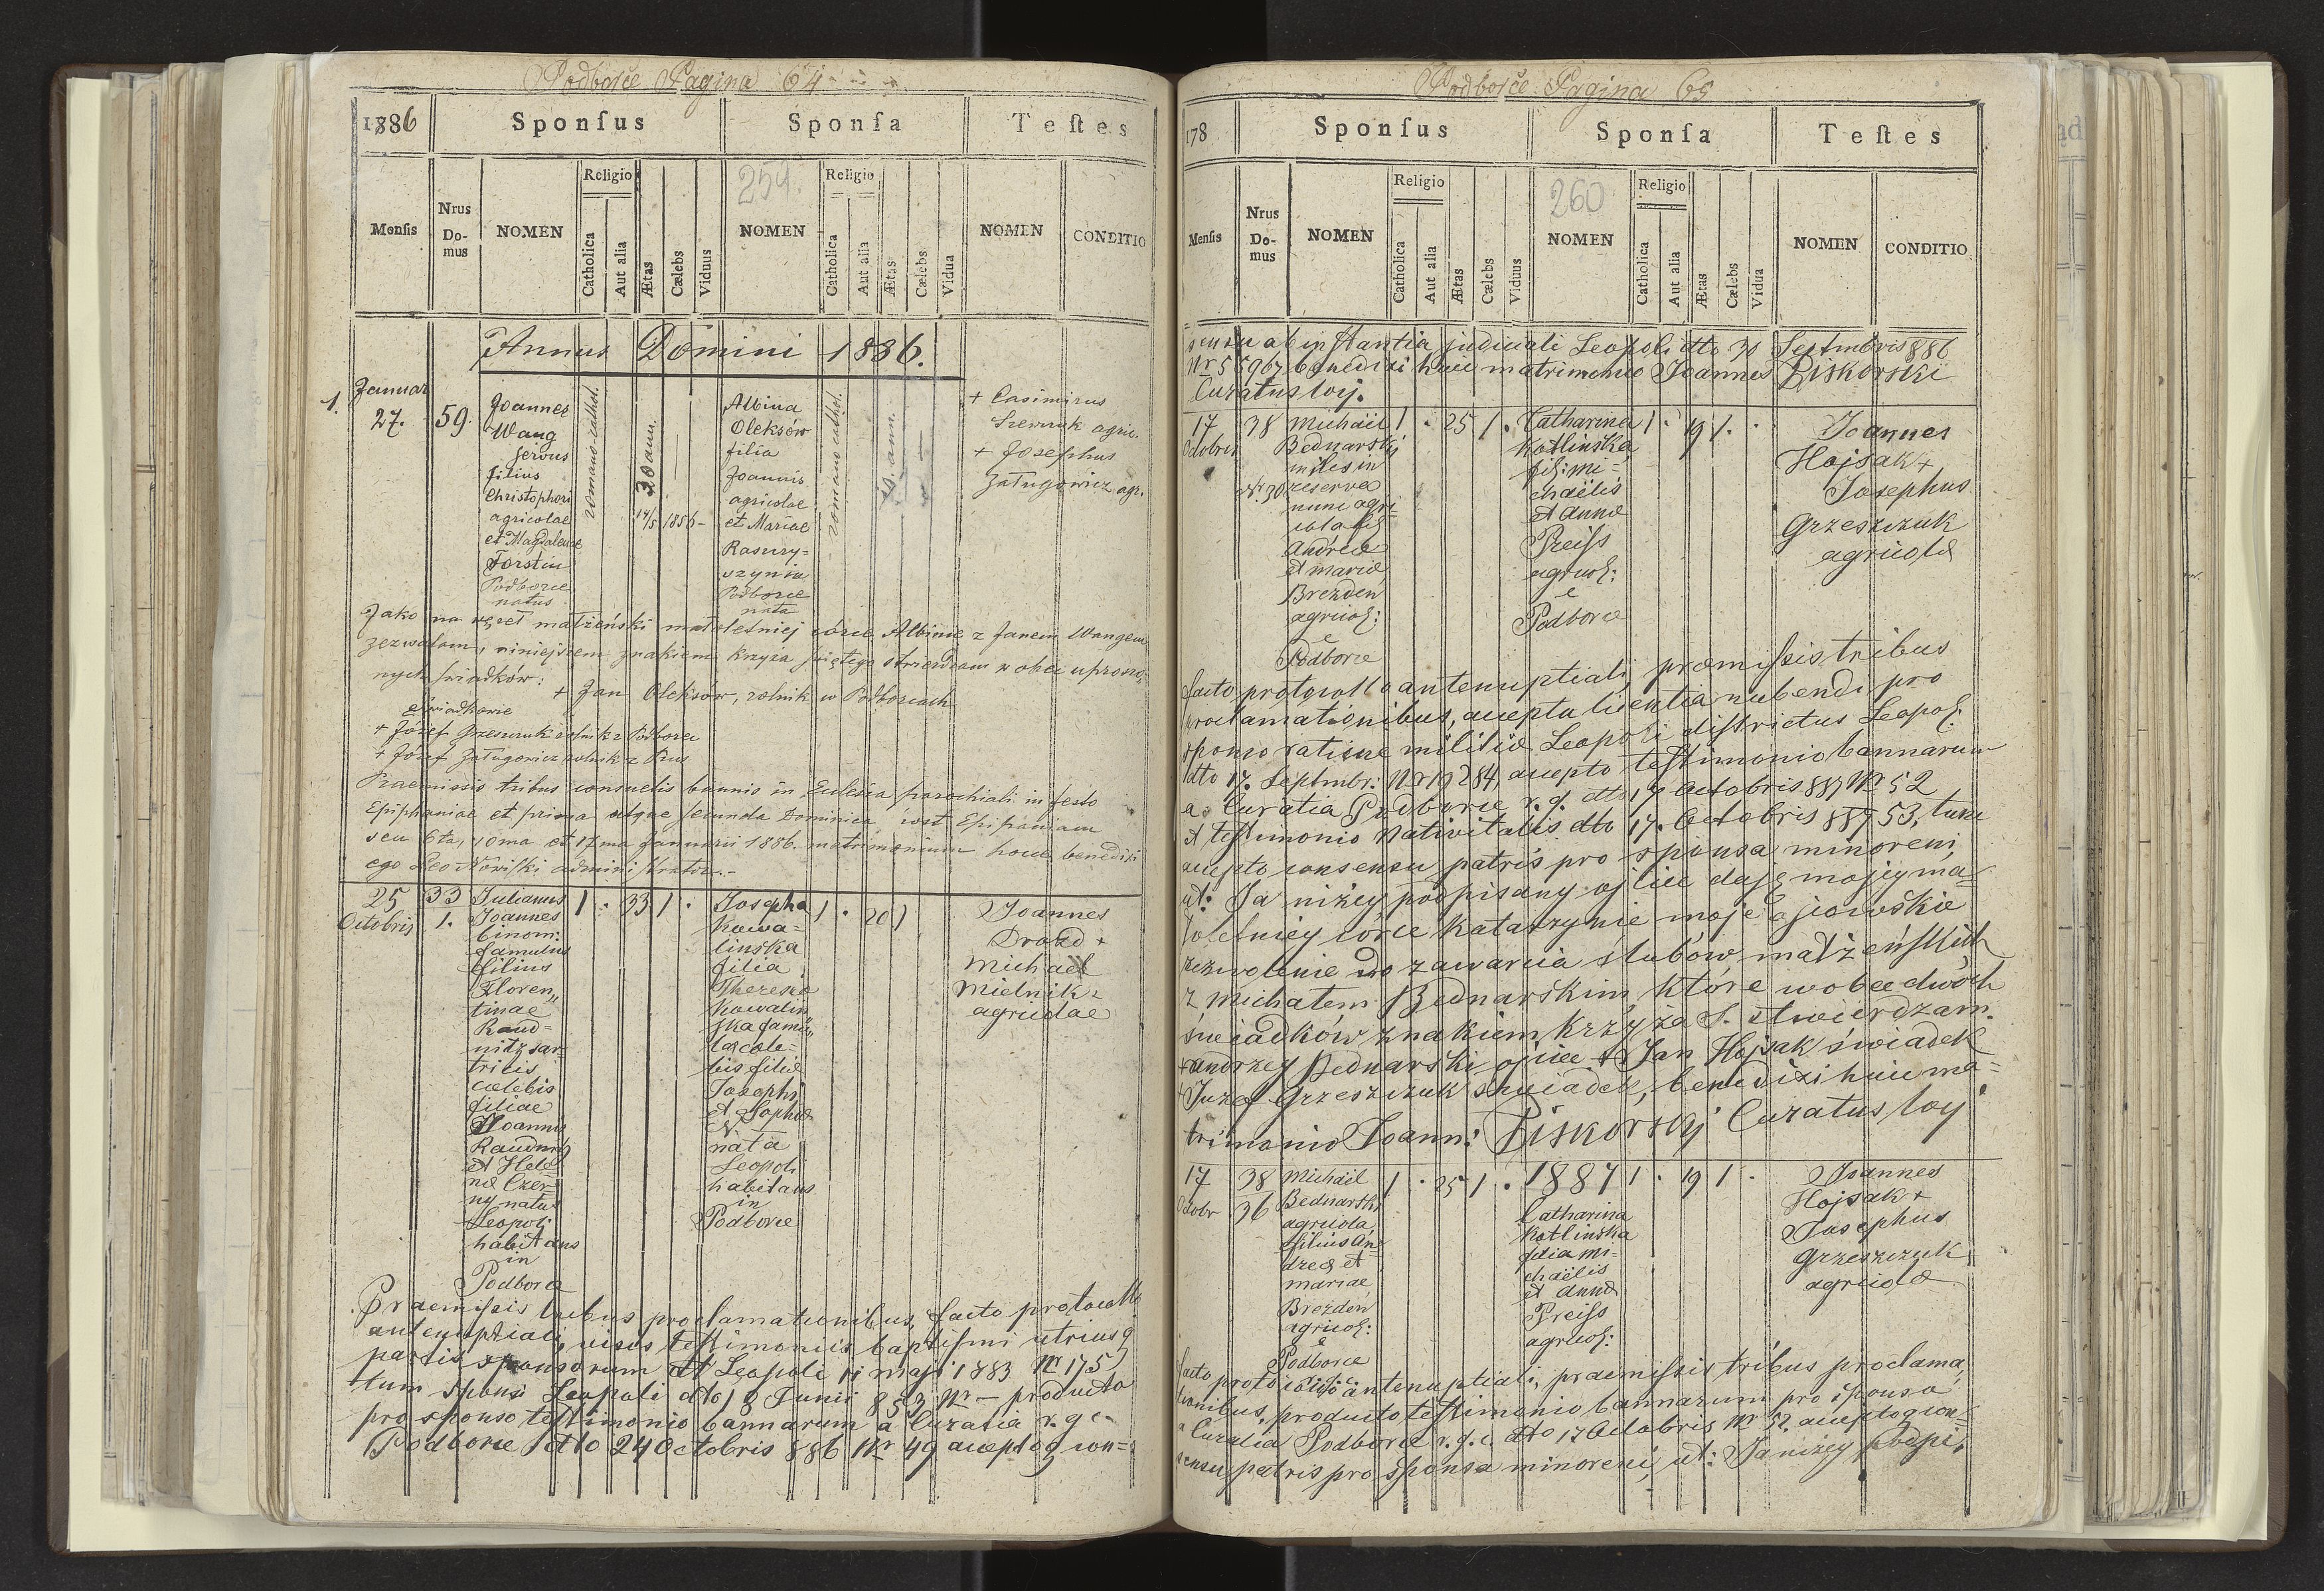 Podborce Pagina 64
1886
Sponſus
Sponſa
Teſtes
Religio
259.
Religio
Menſis
Nrus Do-mus
NOMEN
Catholica
Aut alia
Ætas
Cælebs
Viduus
NOMEN
Catholica
Aut alia
Ætas
Cælebs
Vidua
NOMEN
CONDITIO
Annus Domini 1886.
1.
Januar
27.
59.
Joannes
Wang
servus
filius
Christophori
agricolae
et Magdalenae
Forstin
Podborce
natus
romano cathol.
30 ann.
14/5 1856 -
Albina
Oleksów
filia
Joannis
agricolae
et Mariae
Podborce
nata
romano cathol.
+ Casimirus
Szewczuk agric.
+ Josephus
Załugowicz agr.
Jako na węzeł małżeński małoletniej córce Albinie z Janem Wangem
zezwalam, niniejszem znakiem krzyża świętego stwierdzam w obec uproszo-
nych świadków:
+ Jan Oleksów, rolnik w Podborcach
Świadkowie
+ Józef Grzeszczuk rolnik z Podborca
+ Józef Załugowicz rolnik z Prus
Praemissis tribus consuetis bannis in Eclesia parochiali in festo
Epiphaniae et prima atque secunda Dominica post Epiphaniam
seu 6ta, 10ma et 17ma Januarii 1886. matrimonium hocce benedixi
ego Leo Nowiski administrator.-
25
Octobris
33
1.
Julianus
Joannes
binom:
famulus
filius
Floren„
tinae
Raud=
nitz sar-
tricis
cœlebis
filiae
Joannis
Raudnitz
et Hele
næ Czer-
ny natus
Leopoli
habitans
in
Podborce
1 . 33 1 .
Josepha
Kowa=
linska
filia
Theresiæ
Kowalin
ska famu„
læ cœle=
bis filiæ
Josephi
et Sophiæ
N.
nata
Leopoli
habitans
in
Podborce
1 . 20 1
Joannes
Drozd +
Michael
Mielnik +
agricolae
Praemiſsis tribus proclamationibus, facto protocollo
antenuptiali, visis teſtimoniis baptiſmi utriusq
partis sponsorum dtt Leopoli 11 maji 1883 Nr 175
tum sponsi Leopoli dto 18 Junii 853 Nr — producto
pro sponso teſtimonio bannarum a Curatia r. g. c.
Podborce dto 24 Octobris 886 Nr 49 acceptoq con=
Podborce Pagina 65
178
Sponſus
Sponſa
Teſtes
Religio
260
Religio
Menſis
Nrus Do-mus
NOMEN
Catholica
Aut alia
Ætas
Cælebs
Viduus
NOMEN
Catholica
Aut alia
Ætas
Cælebs
Vidua
NOMEN
CONDITIO
sensu ab inſtantia judiciali Leopoli dto 30 Septmbris 886
Nr 55967 benedixi huic matrimonio Joannes Piskorski
Curatus loci.
17
Octobris
38
Nr 30
Michäel
Bednarskij
miles in
reserva
nunc agri-
cola fil:
Andreæ
et Mariæ
Brezden
agricol:
e
Podborce
1 . 25 1 .
Catharina
Kotlinska
fil: Mi=
chaëlis
et Annæ
Preiſs
agricol:
e
Podborce
1 . 19 1 . .
Joannes
Hojsak +
Josephus
Grzeszczuk
agricolæ
facto protocollo antenuptiali, præmiſsis tribus
proclamationibus, accepta licentia nubendi pro
sponso ratione militiæ Leopoli diſtrictus Leopol:
dto 17. Septmbr: Nr 19284, accepto teſtimonio bannarum
a Curatia Podborce r. g. dto 17 Octobris 887 Nr 52
et teſtimonio Nativitatis dto 17. Octobris 887 53, tum
accepto consensu patris pro sponsa minoreni,
ut: Ja niżey podpisany ojciec daję mojey ma=
łoletniey córce Katarzynie moje ojcowskie
zezwolenie do zawarcia ślubów małżeńſkich
z Michałem Bednarskim, które wobec dwóch
świadków znakiem krzyża S. stwierdzam.
+ Andrzey Bednarski ojciec + Jan Hojsak świadek
Juzef Grzeszczuk świadek, benedixi huic ma=
trimonio Joann: Piskorskij Curatus loci
17
Octobr
38
36
Michäel
Bednarski
agricola
filius An=
dreæ et
Mariæ
Brezden
agricol:
e
Podborce
1 . 25 1 .
1887
Catharina
Kotlinska
filia Mi=
chaëlis
et Annæ
Preiſs
agricol:
1 . 19 1 .
Joannes
Hojsak +
Josephus
Grzeszczuk
agricolæ
facto protocollo antenuptiali, praemiſsis tribus proclama„
tionibus, producto teſtimonio bannarum pro sponsa
a Curatia Podborce r. g. c. dto 17 Octobris Nr 52. acceptoq con=
sensu patris pro sponsa minoreni, ut: Ja niżey podpi„